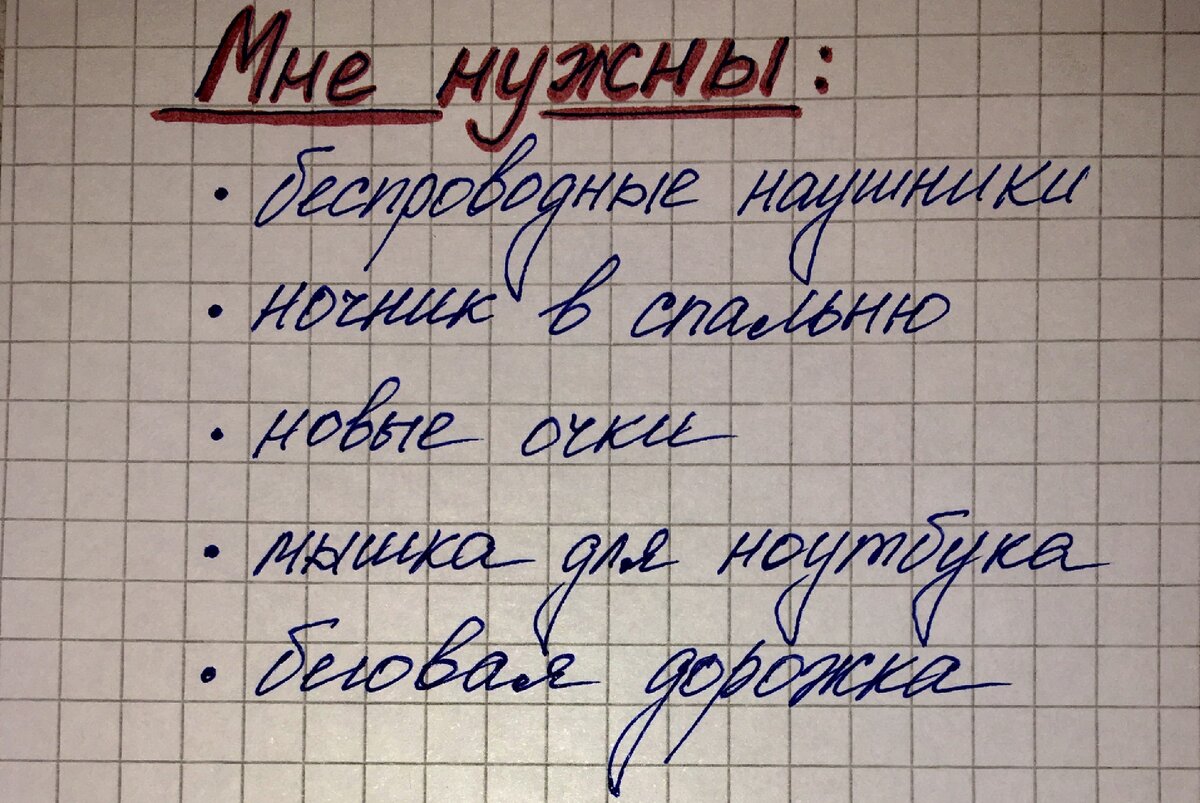 Мне нужны:
• беспроводные наушники
• ночник в спальню
• новые очки
• мышка для ноутбука
• беговая дорожка